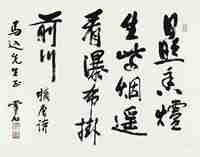 日照香爐
生紫烟遥
看瀑布掛
前川
先生正